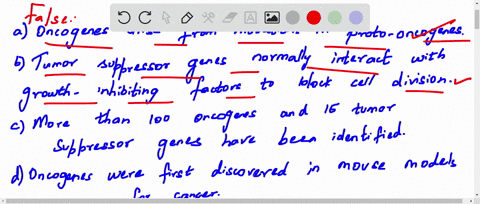 False:
a) Oncogenes from in proto-oncogenes.
b) Tumor suppressor genes normally interact with
growth-inhibiting factors to block cell division.
c) More than 100 oncogenes and 15 tumor
suppressor genes have been identified.
d) Oncogenes were first discovered in mouse models
for cancer.